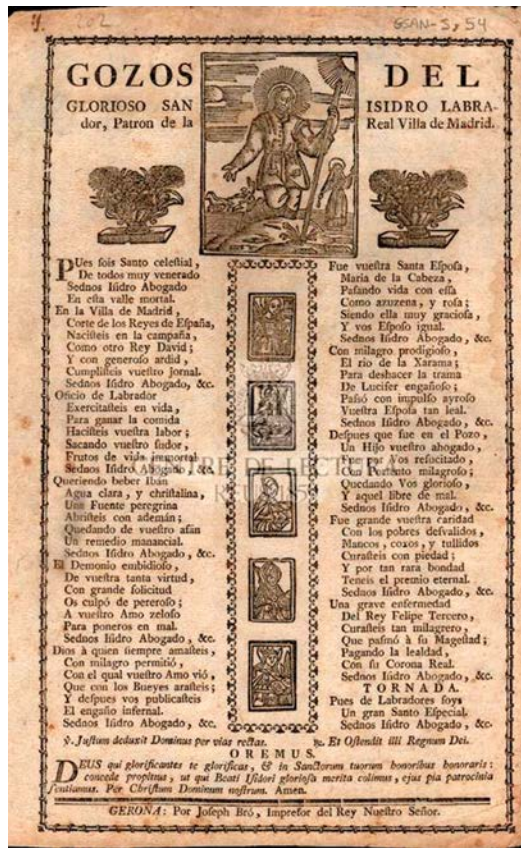 202
GSAN-S, 54
GOZOS DEL
GLORIOSO SAN ISIDRO LABRA-
dor, Patron de la Real Villa de Madrid.
PUes sois Santo celeſtial,
De todos muy venerado
Sednos Iſidro Abogado
En eſta valle mortal.
En la Villa de Madrid,
Corte de los Reyes de Eſpaña,
Naciſteis en la campaña,
Como otro Rey David;
Y con generoſo ardid,
Cumpliſteis vueſtro jornal.
Sednos Iſidro Abogado, &c.
Oficio de Labrador
Exercitaſteis en vida,
Para ganar la comida
Haciſteis vueſtra labor;
Sacando vueſtro ſudor,
Frutos de vida immortal
Sednos Iſidro Abogado, &c.
Queriendo beber Ibán
Agua clara, y chriſtalina,
Una Fuente peregrina
Abriſteis con ademán;
Quedando de vueſtro afán
Un remedio manancial.
Sednos Iſidro Abogado, &c.
El Demonio embidioſo,
De vueſtra tanta virtud,
Con grande ſolicitud
Os culpó de pereroſo;
A vueſtro Amo zeloſo
Para poneros en mal.
Sednos Iſidro Abogado, &c.
Dios à quien ſiempre amaſteis,
Con milagro permitió,
Con el qual vueſtro Amo vió,
Que con los Bueyes araſteis;
Y deſpues vos publicaſteis
El engaño infernal.
Sednos Iſidro Abogado, &c.
Fue vueſtra Santa Eſpoſa,
Maria de la Cabeza,
Paſando vida con eſſa
Como azuzena, y roſa;
Siendo ella muy gracioſa,
Y vos Eſpoſo igual.
Sednos Iſidro Abogado, &c.
Con milagro prodigioſo,
El rio de la Xarama;
Para deshacer la trama
De Lucifer engañoſo;
Paſsó con impulſo ayroſo
Vueſtra Eſpoſa tan leal.
Sednos Iſidro Abogado, &c.
Deſpues que fue en el Pozo,
Un Hijo vueſtro ahogado,
Fue por Vos reſucitado,
Con Portento milagroſo;
Quedando Vos glorioſo,
Y aquel libre de mal.
Sednos Iſidro Abogado, &c.
Fue grande vueſtra caridad
Con los pobres deſvalidos,
Mancos, coxos, y tullidos
Curaſteis con piedad;
Y por tan rara bondad
Teneis el premio eternal.
Sednos Iſidro Abogado, &c.
Una grave enfermedad
Del Rey Felipe Tercero,
Curaſteis tan milagrero,
Que paſinó à ſu Mageſtad;
Pagando la lealdad,
Con ſu Corona Real.
Sednos Iſidro Abogado, &c.
TORNADA.
Pues de Labradores ſoys
Un gran Santo Eſpecial.
Sednos Iſidro Abogado, &c.
℣. Juſtum deduxit Dominus per vias rectas. ℟. Et Oſtendit illi Regnum Dei.
OREMUS.
DEUS qui glorificantes te glorificas, & in Sanctorum tuorum honoribus honoraris:
concede propitius, ut qui Beati Iſidori glorioſa merita colimus, ejus pia patrocinia
ſentiamus. Per Chriſtum Dominum noſtrum. Amen.
GERONA: Por Joſeph Bró, Impreſor del Rey Nueſtro Señor.